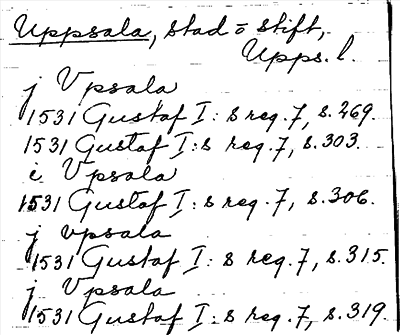 Uppsala, stad o stift,
Upps. l.
j Vpsala
1531 Gustaf I: s reg. 7, s. 269.
1531 Gustaf I: s reg. 7, s. 303.
i Vpsala
1531 Gustaf I: s reg. 7, s. 306.
j vpsala
1531 Gustaf I: s reg. 7, s. 315.
j Vpsala
1531 Gustaf I: s reg. 7, s. 319.